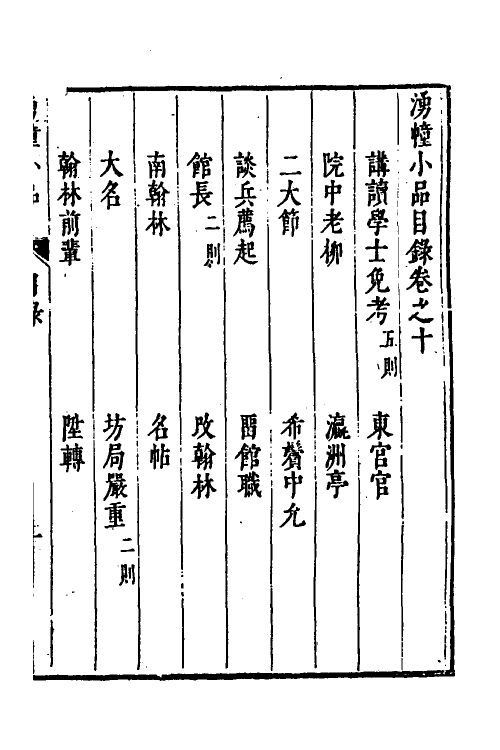 湧幢小品目錄卷之十
講讀學士免考五則 東宮官
院中老柳 瀛洲亭
二大節 希贊中允
談兵薦起 畱館職
館長二則 改翰林
南翰林 名帖
大名 坊局嚴重二則
翰林前輩 陞轉